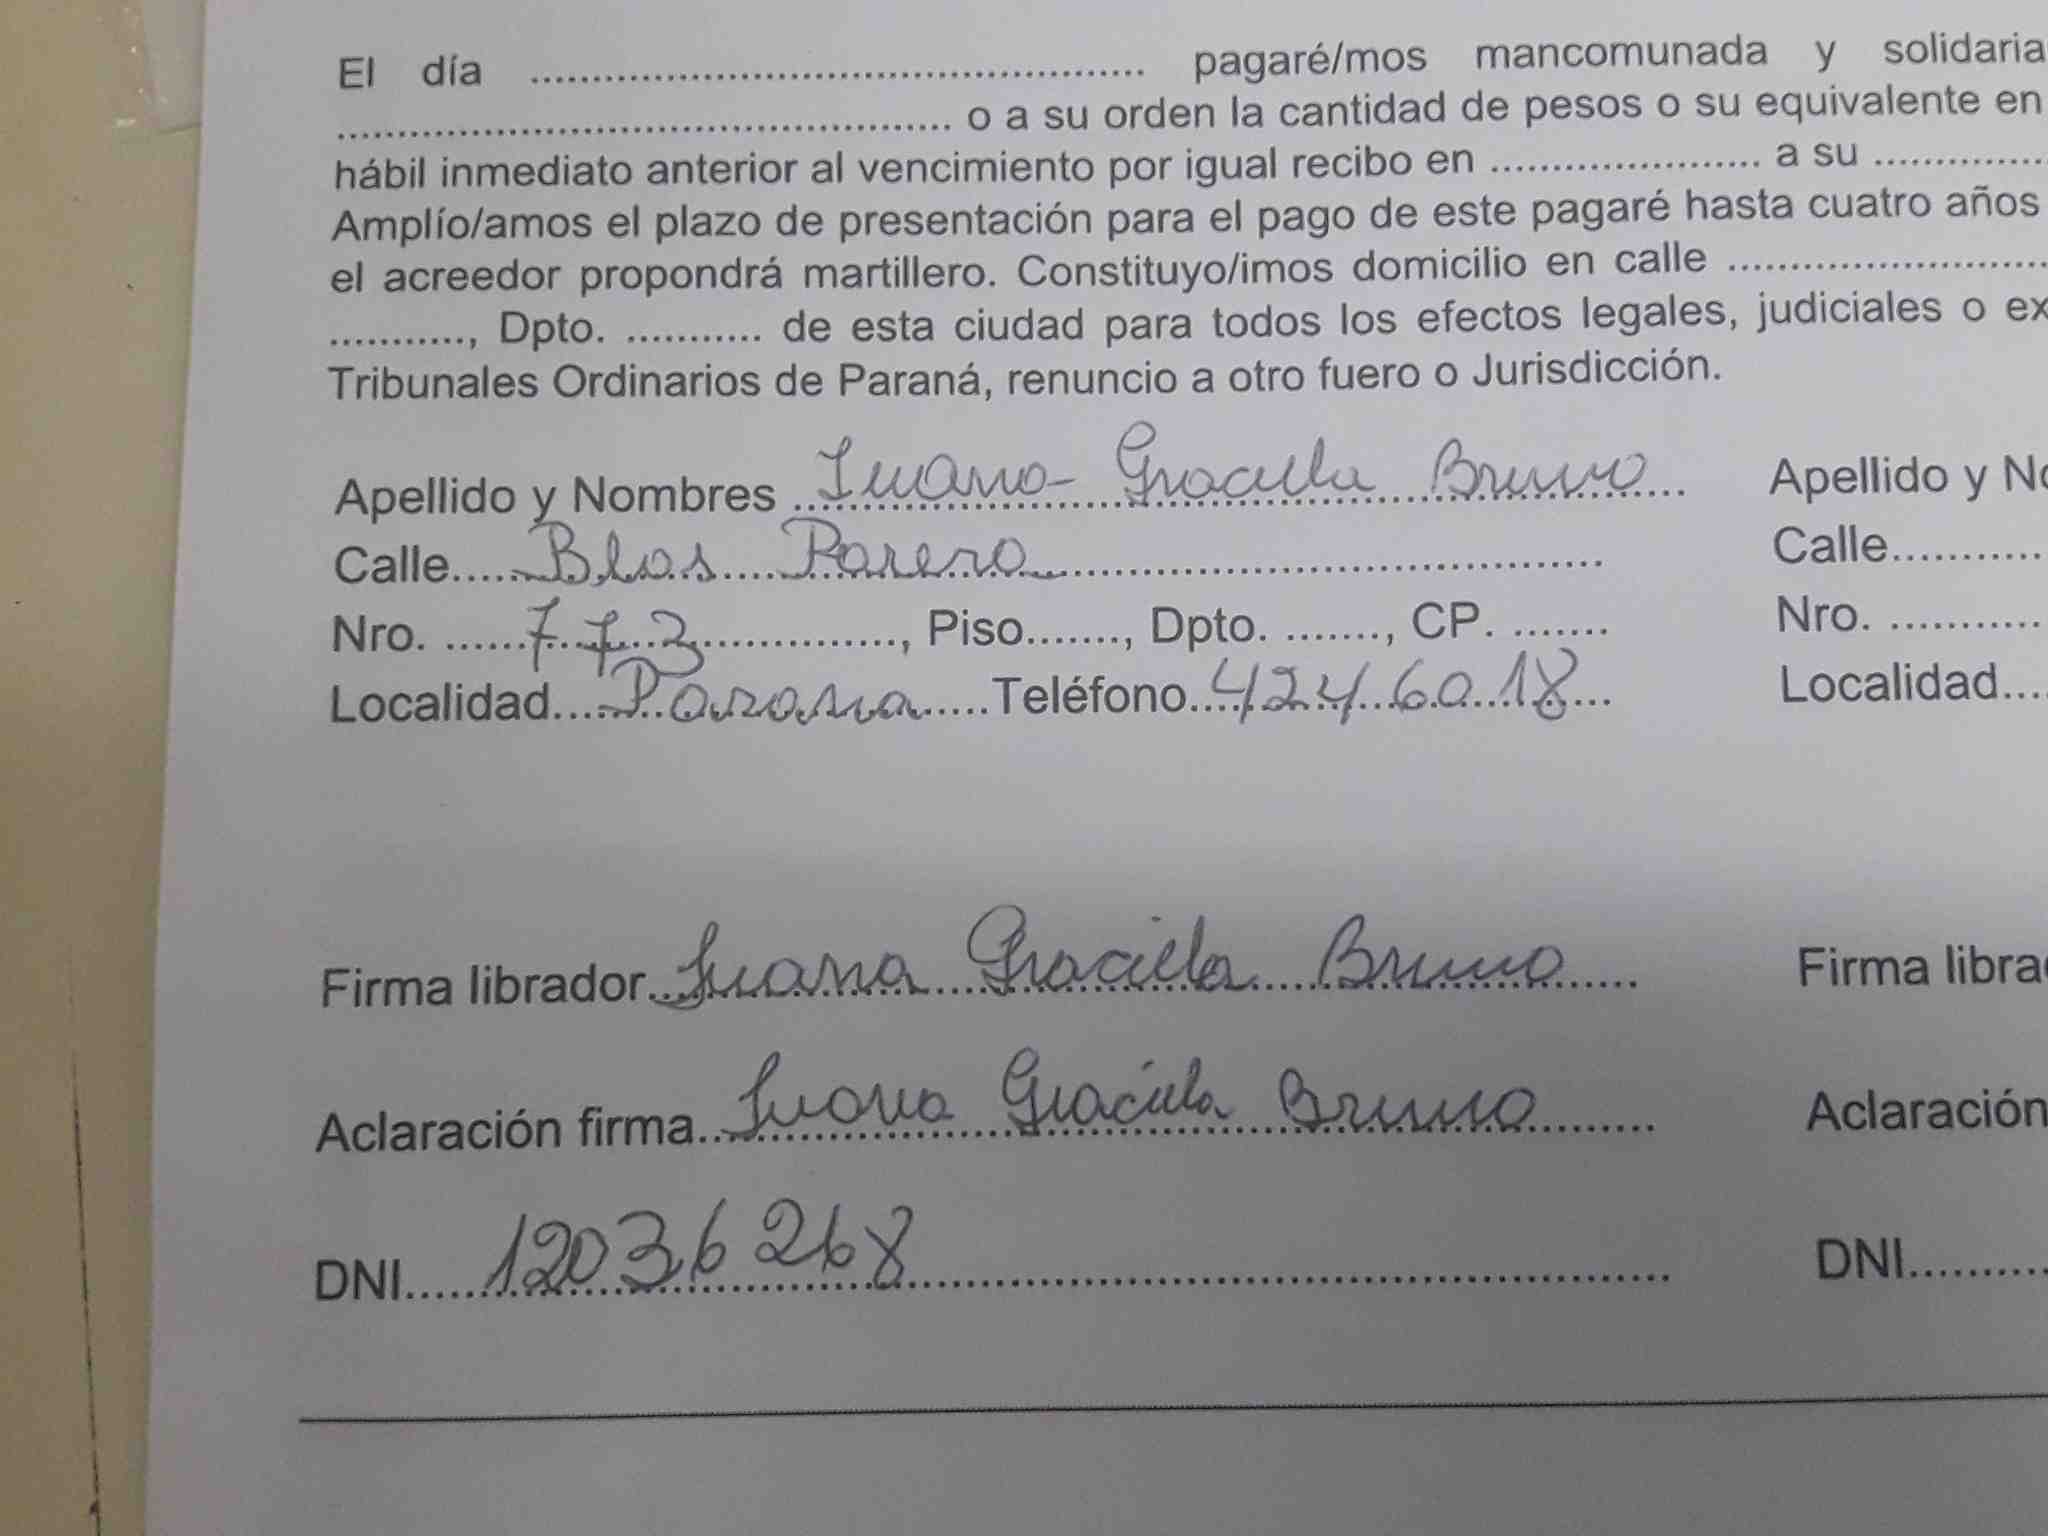 El día .................................................. pagaré/mos mancomunada y solidaria
.................................................. o a su orden la cantidad de pesos o su equivalente en
hábil inmediato anterior al vencimiento por igual recibo en ...................... a su ..............
Amplío/amos el plazo de presentación para el pago de este pagaré hasta cuatro años
el acreedor propondrá martillero. Constituyo/imos domicilio en calle ..........................
..........., Dpto. ........... de esta ciudad para todos los efectos legales, judiciales o ex
Tribunales Ordinarios de Paraná, renuncio a otro fuero o Jurisdicción.
Apellido y Nombres Juana Graciela Bruno Apellido y No
Calle Blas Parera Calle
Nro. 773, Piso......., Dpto. ......., CP. ....... Nro.
Localidad Parana Teléfono 4246018 Localidad
Firma librador Juana Graciela Bruno Firma libra
Aclaración firma Juana Graciela Bruno Aclaración
DNI 12036268 DNI